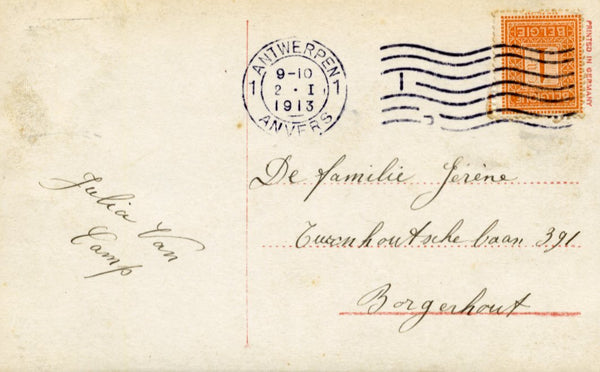 ANTWERPEN
1 9-10 1
2 · I
1913
ANVERS
1
BELGIE
1
BELGIQUE
PRINTED IN GERMANY
Julia Van
Camp
De familie Jérène
Turnhoutsche baan 391
Borgerhout